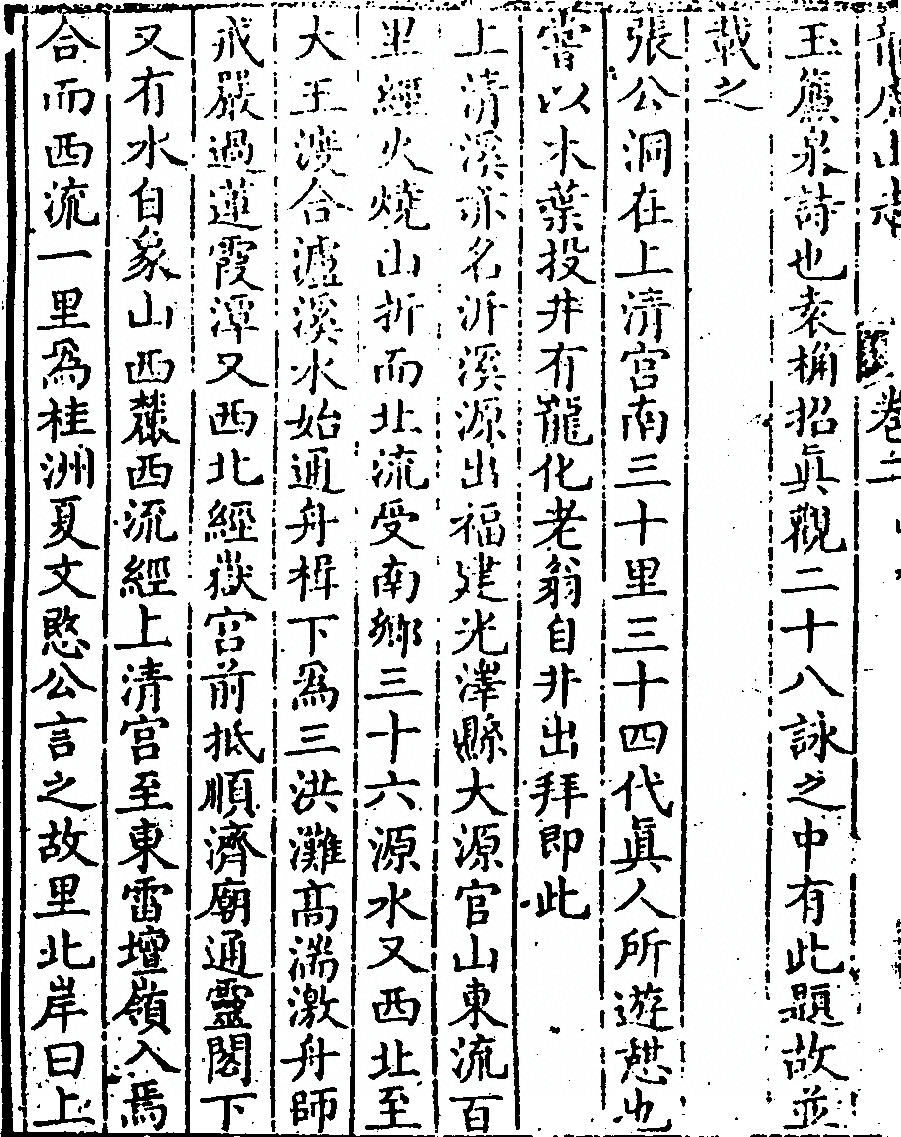 龍虎山志 卷二
玉簾泉詩也袁桷招眞觀二十八詠之中有此題故並
載之
張公洞在上清宮南三十里三十四代眞人所遊憇也
嘗以木葉投井有龍化老翁自井出拜即此
上清溪亦名沂溪源出福建光澤縣大源官山東流百
里經火燒山折而北流受南鄉三十六源水又西北至
大王渡合瀘溪水始通舟楫下爲三洪灘高湍激舟師
戒嚴過蓮霞潭又西北經嶽宮前抵順濟廟通靈閣下
又有水自象山西麓西流經上清宮至東雷壇嶺入焉
合而西流一里爲桂洲夏文愍公言之故里北岸曰上